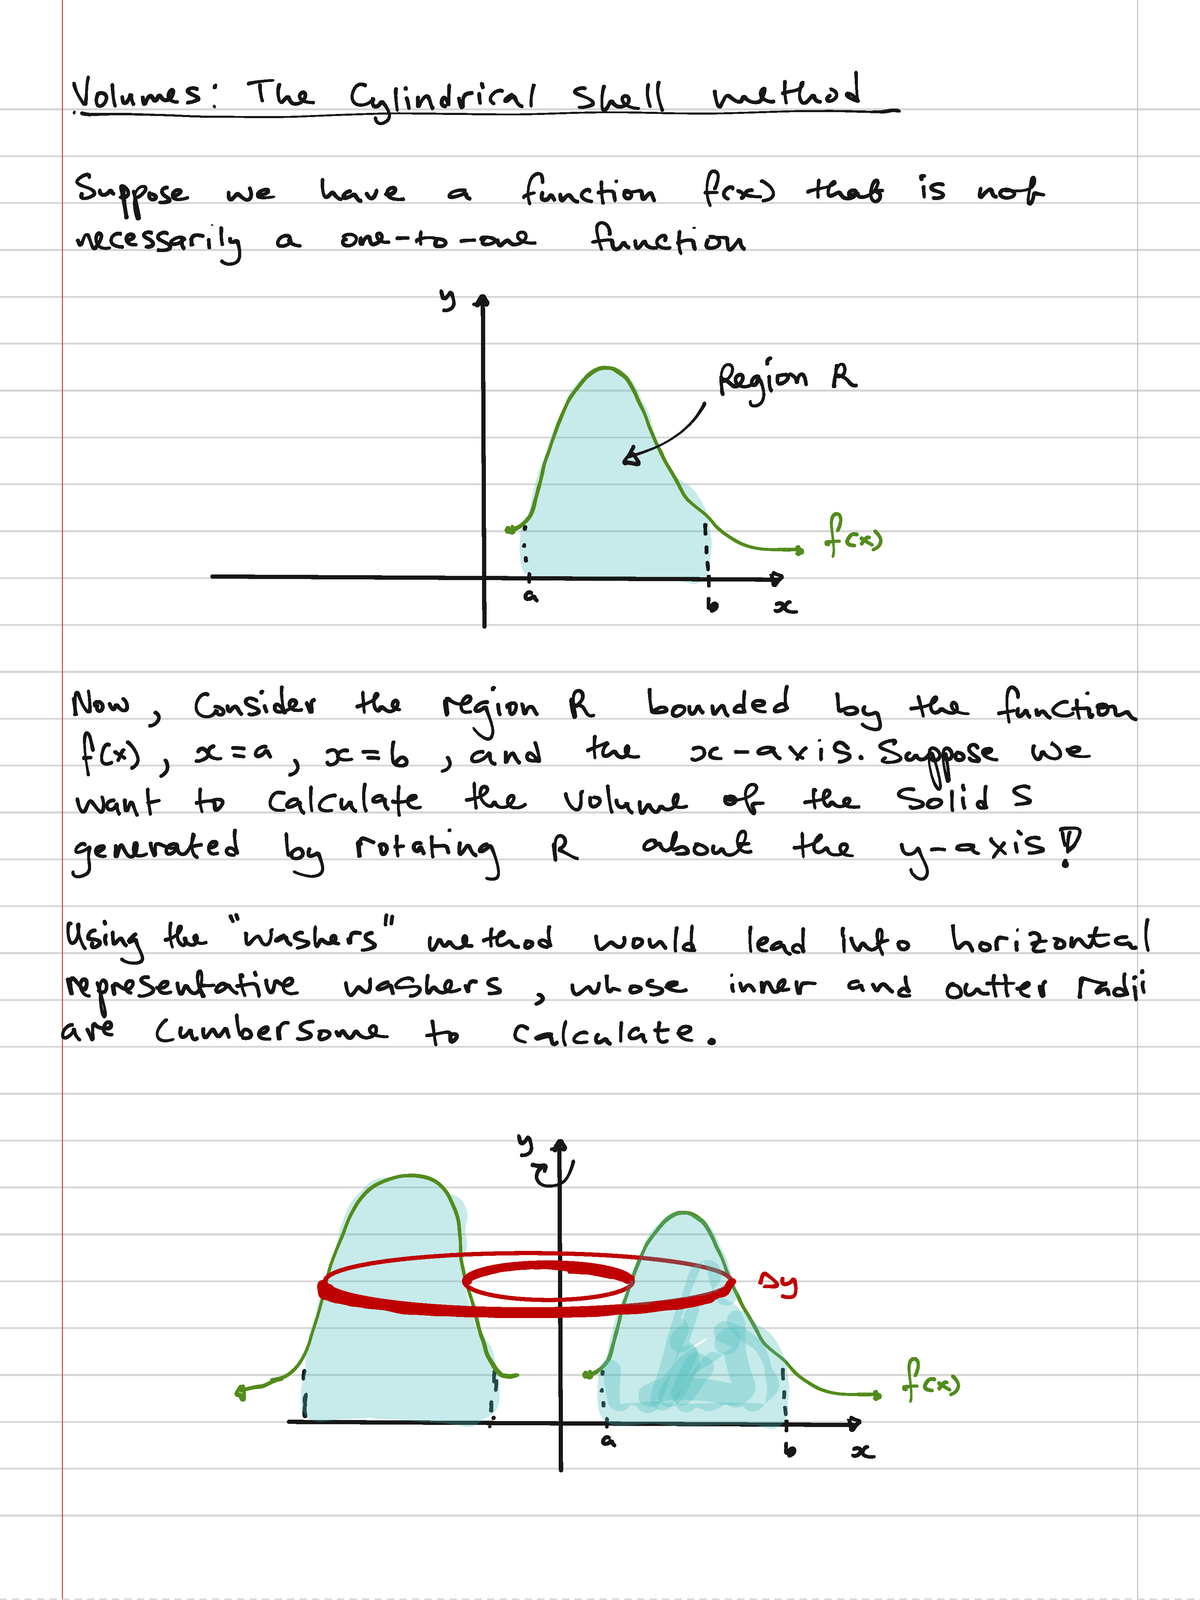 Volumes: The Cylindrical Shell method
Suppose we have a function f(x) that is not
necessarily a one-to-one function
y
Region R
f(x)
a
b
x
Now, Consider the region R bounded by the function
f(x), x=a, x=b, and the x-axis. Suppose we
want to calculate the volume of the Solid S
generated by rotating R about the y-axis!
Using the "washers" method would lead into horizontal
representative washers, whose inner and outter radii
are cumbersome to calculate.
y
Δy
f(x)
a
b
x